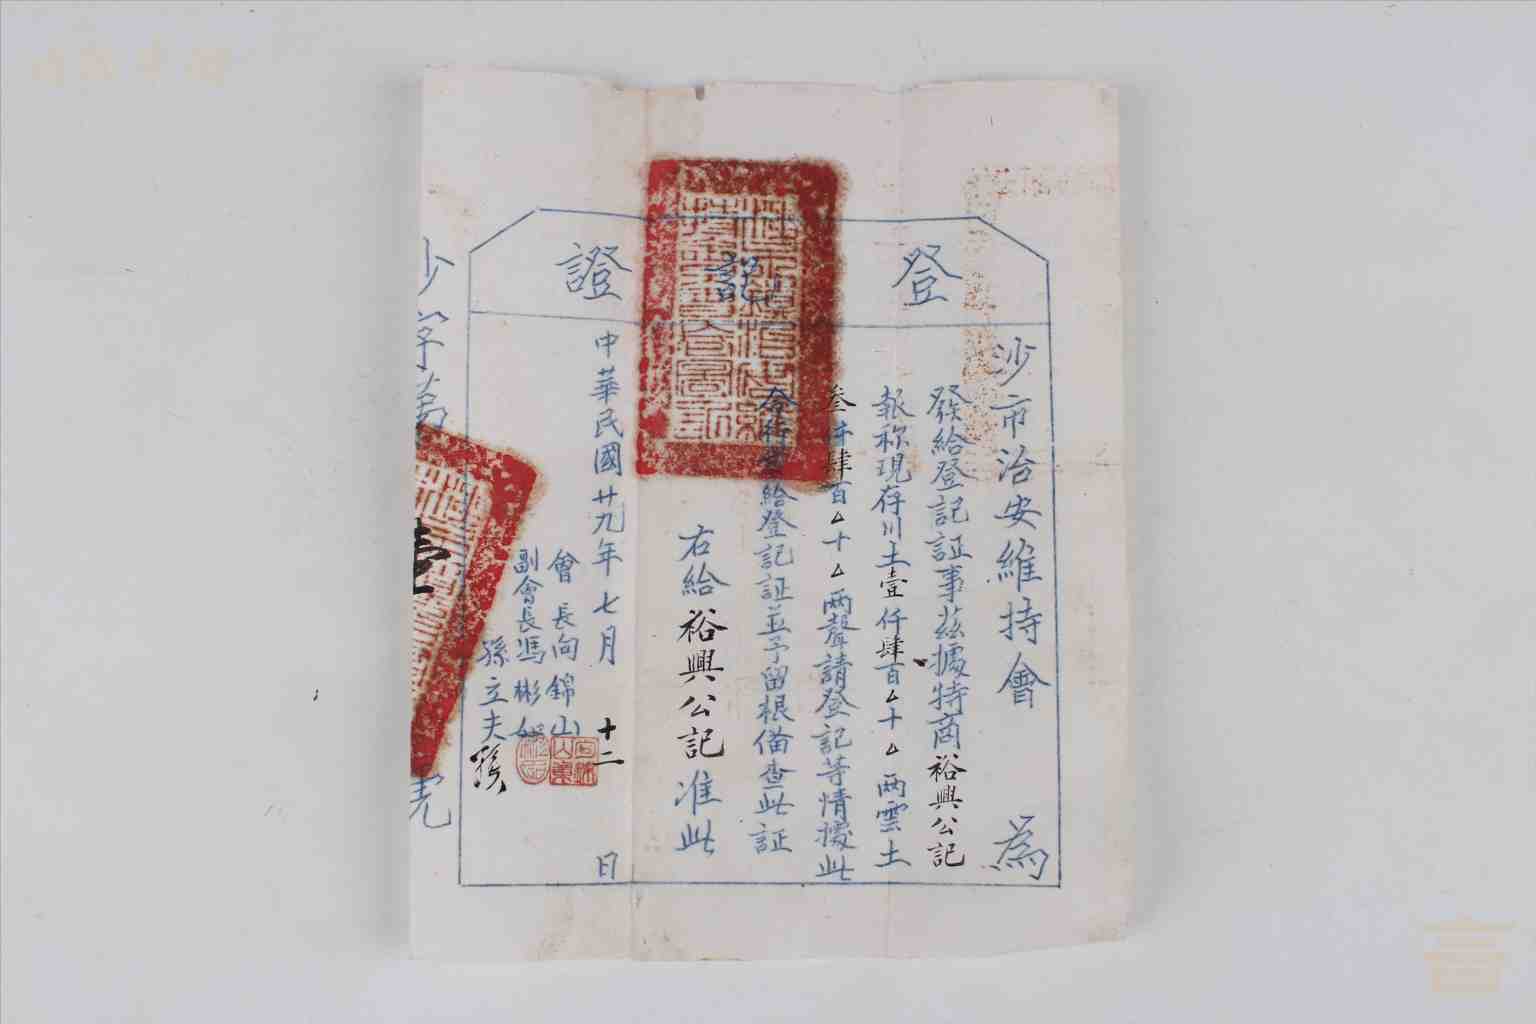 登記證
沙市治安維持會 為
發給登記証事茲據特商裕興公記
報称現存川土壹仟肆百△十△両雲土
叁仟肆百△十△両聲請登記等情據此
合行發給登記証並予留根俻查此証
右給裕興公記准此
中華民國廿九年七月十二日
會長向錦山
副會長馮彬
孫立夫
沙字第
壹
號